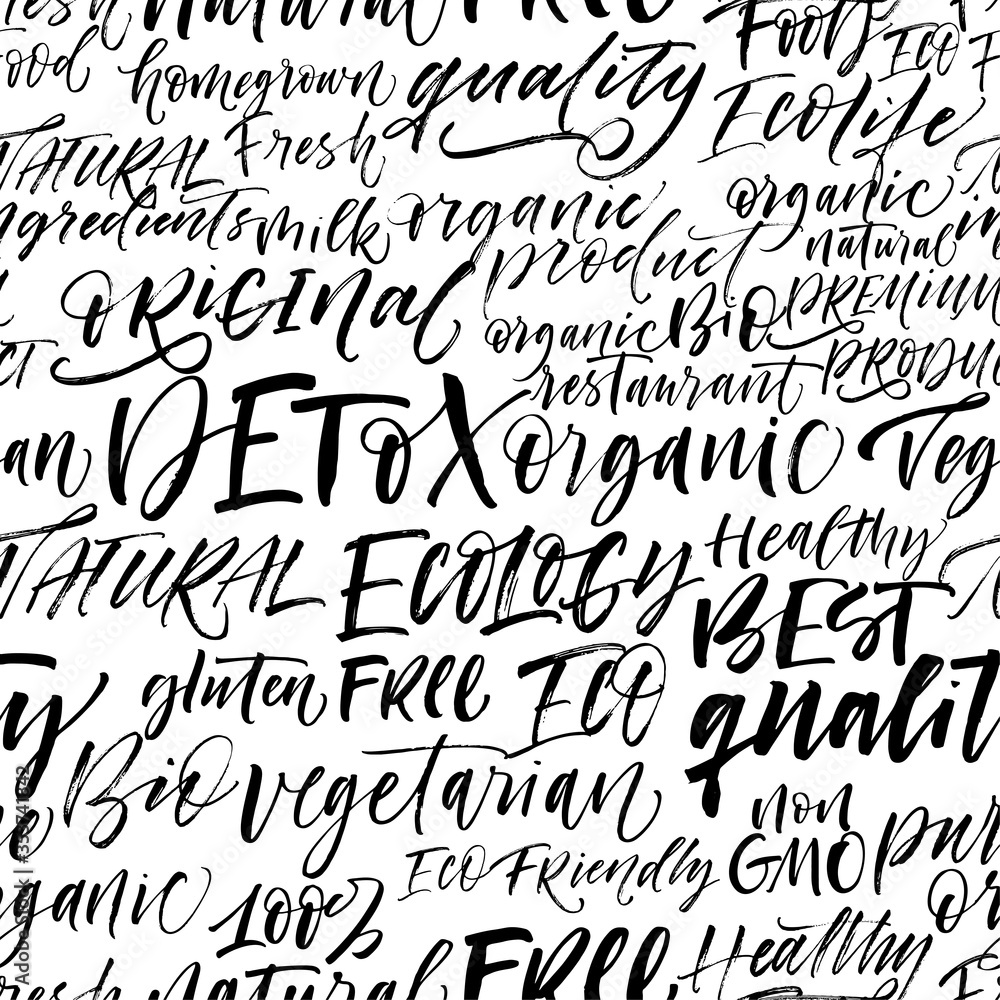 Fresh Natural FREE
Food homegrown quality Food Eco
Ecolife
NATURAL Fresh
ingredients milk organic product organic
natural
ORIGINAL organic Bio PREMIUM
restaurant PRODU
an DETOX organic Veg
NATURAL ECOLOGY Healthy
BEST
gluten FREE ECO qualit
ty
Bio vegetarian
non
GMO pur
Eco Friendly
rganic 100% or
resh natural FREE Healthy
Adobe Stock | #339741342